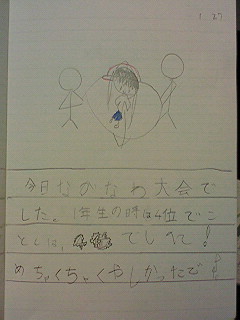 1 27
今日なのなわ大会で
した。1年生の時は4位でこ
としは、
めちゃくちゃくやしかったで!